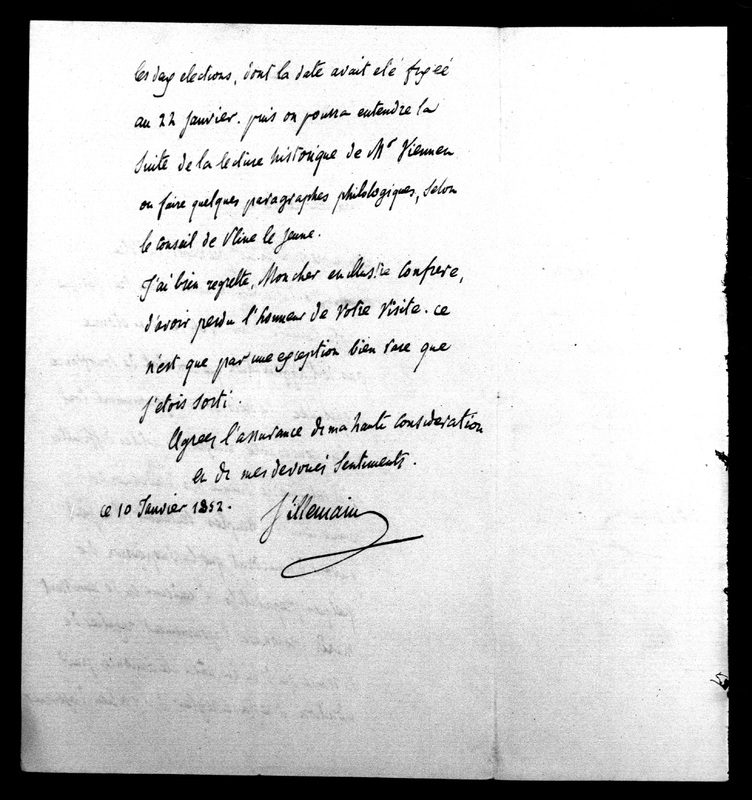 les deux elections, dont la date avait eté fixéé
au 22 Janvier. puis on pourra entendre la
suite de la lecture historique de Mr Viennet
ou faire quelques paragraphes philologiques, Selon
le conseil de Pline le Jeune.
J'ai bien regretté, Mon cher et illustre Confrere,
d'avoir perdu l'honneur de Votre Visite. ce
n'est que par une exception bien rare que
j'etois sorti.
Agréez l'assurance de ma haute consideration
et de mes devoués Sentiments.
ce 10 Janvier 1852.
Villemain